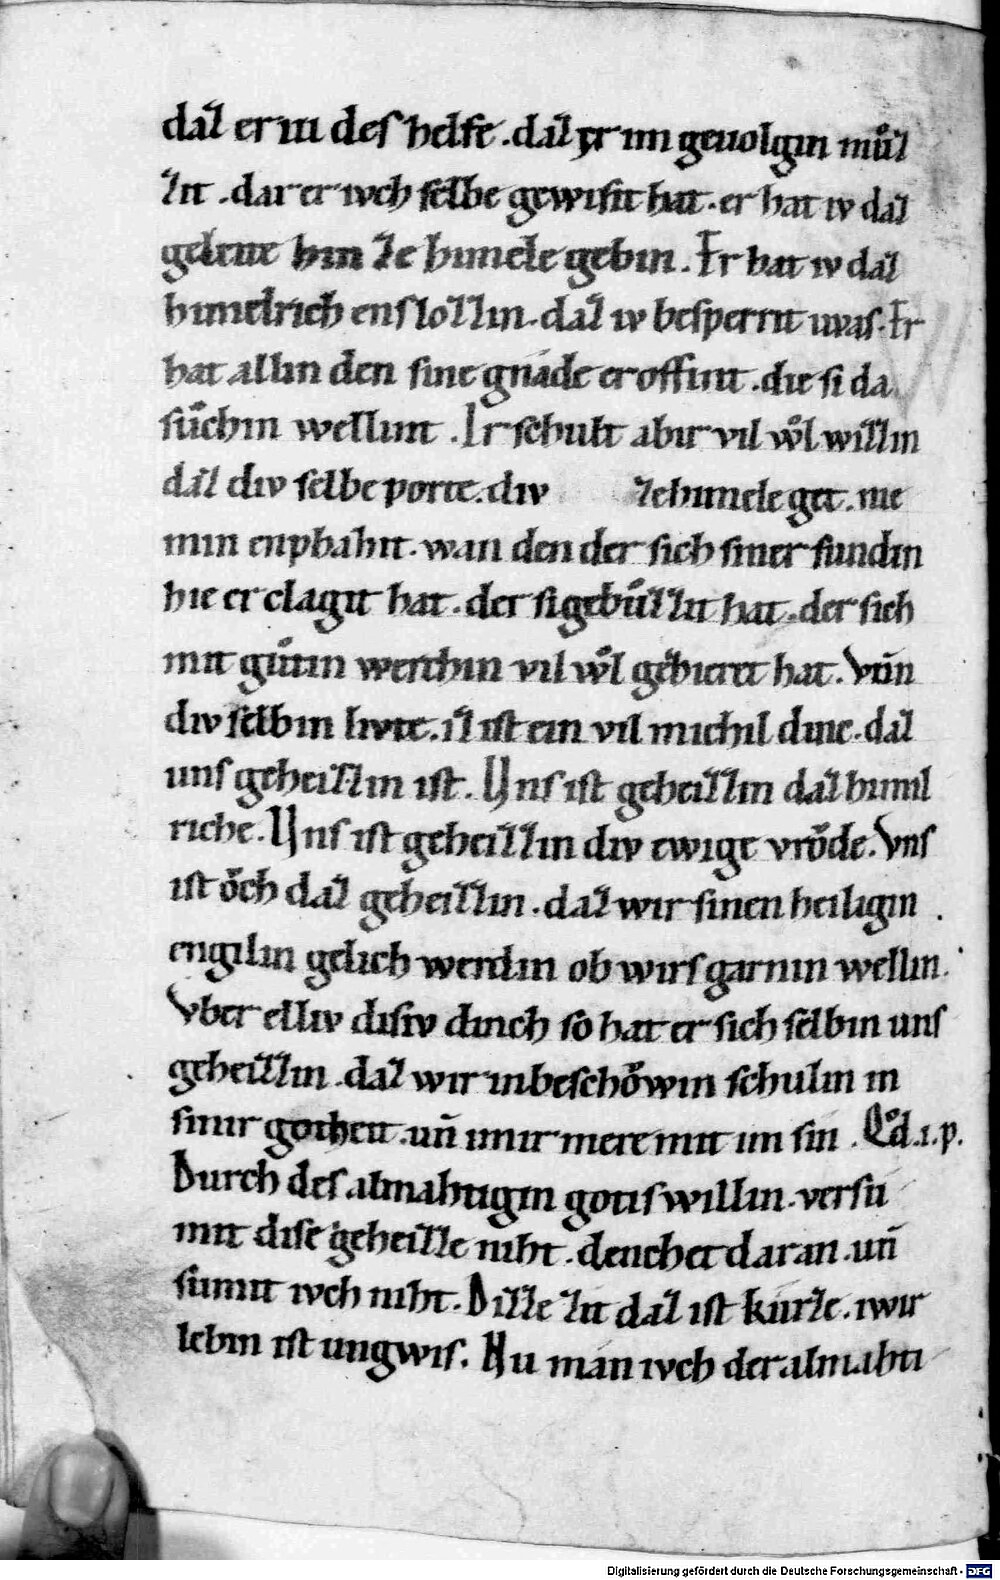 daz er iu des helfe . daz yr im geuolgin můz
zit . dar er ivch selbe gewisit hat . er hat iv daz
geleite hin ze himele gebin . Er hat iv daz
himelrich enslozzin . daz iv besperrit was . Er
hat allin den sine gnade eroffint . die si da
sůchin wellint . Ir schult abir vil wͦl wizzin
daz div selbe porte . div zehimele get . nie
min enphahit . wan den der sich siner sundin
hie er clagit hat . der si gebůzzit hat . der sich
mit gůtin werchin vil wͦl gezieret hat . Vñ
div selbin livte . iz ist ein vil michil dinc . daz
uns geheizzin ist . Uns ist geheizzin daz himil
riche . Uns ist geheizzin div ewige vrŏde . Vns
ist ŏch daz geheizzin . daz wir sinen heiligin
engilin gelich werdin ob wirs garnin wellin .
Vber elliv disiv dinch so hat er sich selbin uns
geheizzin . daz wir in beschŏwin schulin in
sinir gotheit . uñ imir mere mit im sin . Qͦd . i . p .
Durch des almahtigin gotis willin . versu
mit dise geheizze niht . denchet daran . uñ
sumit ivch niht . Dizze zit daz ist kurze . iwir
lebin ist ungwis . Nu man ivch der almahti
Digitalisierung gefördert durch die Deutsche Forschungsgemeinschaft - DFG